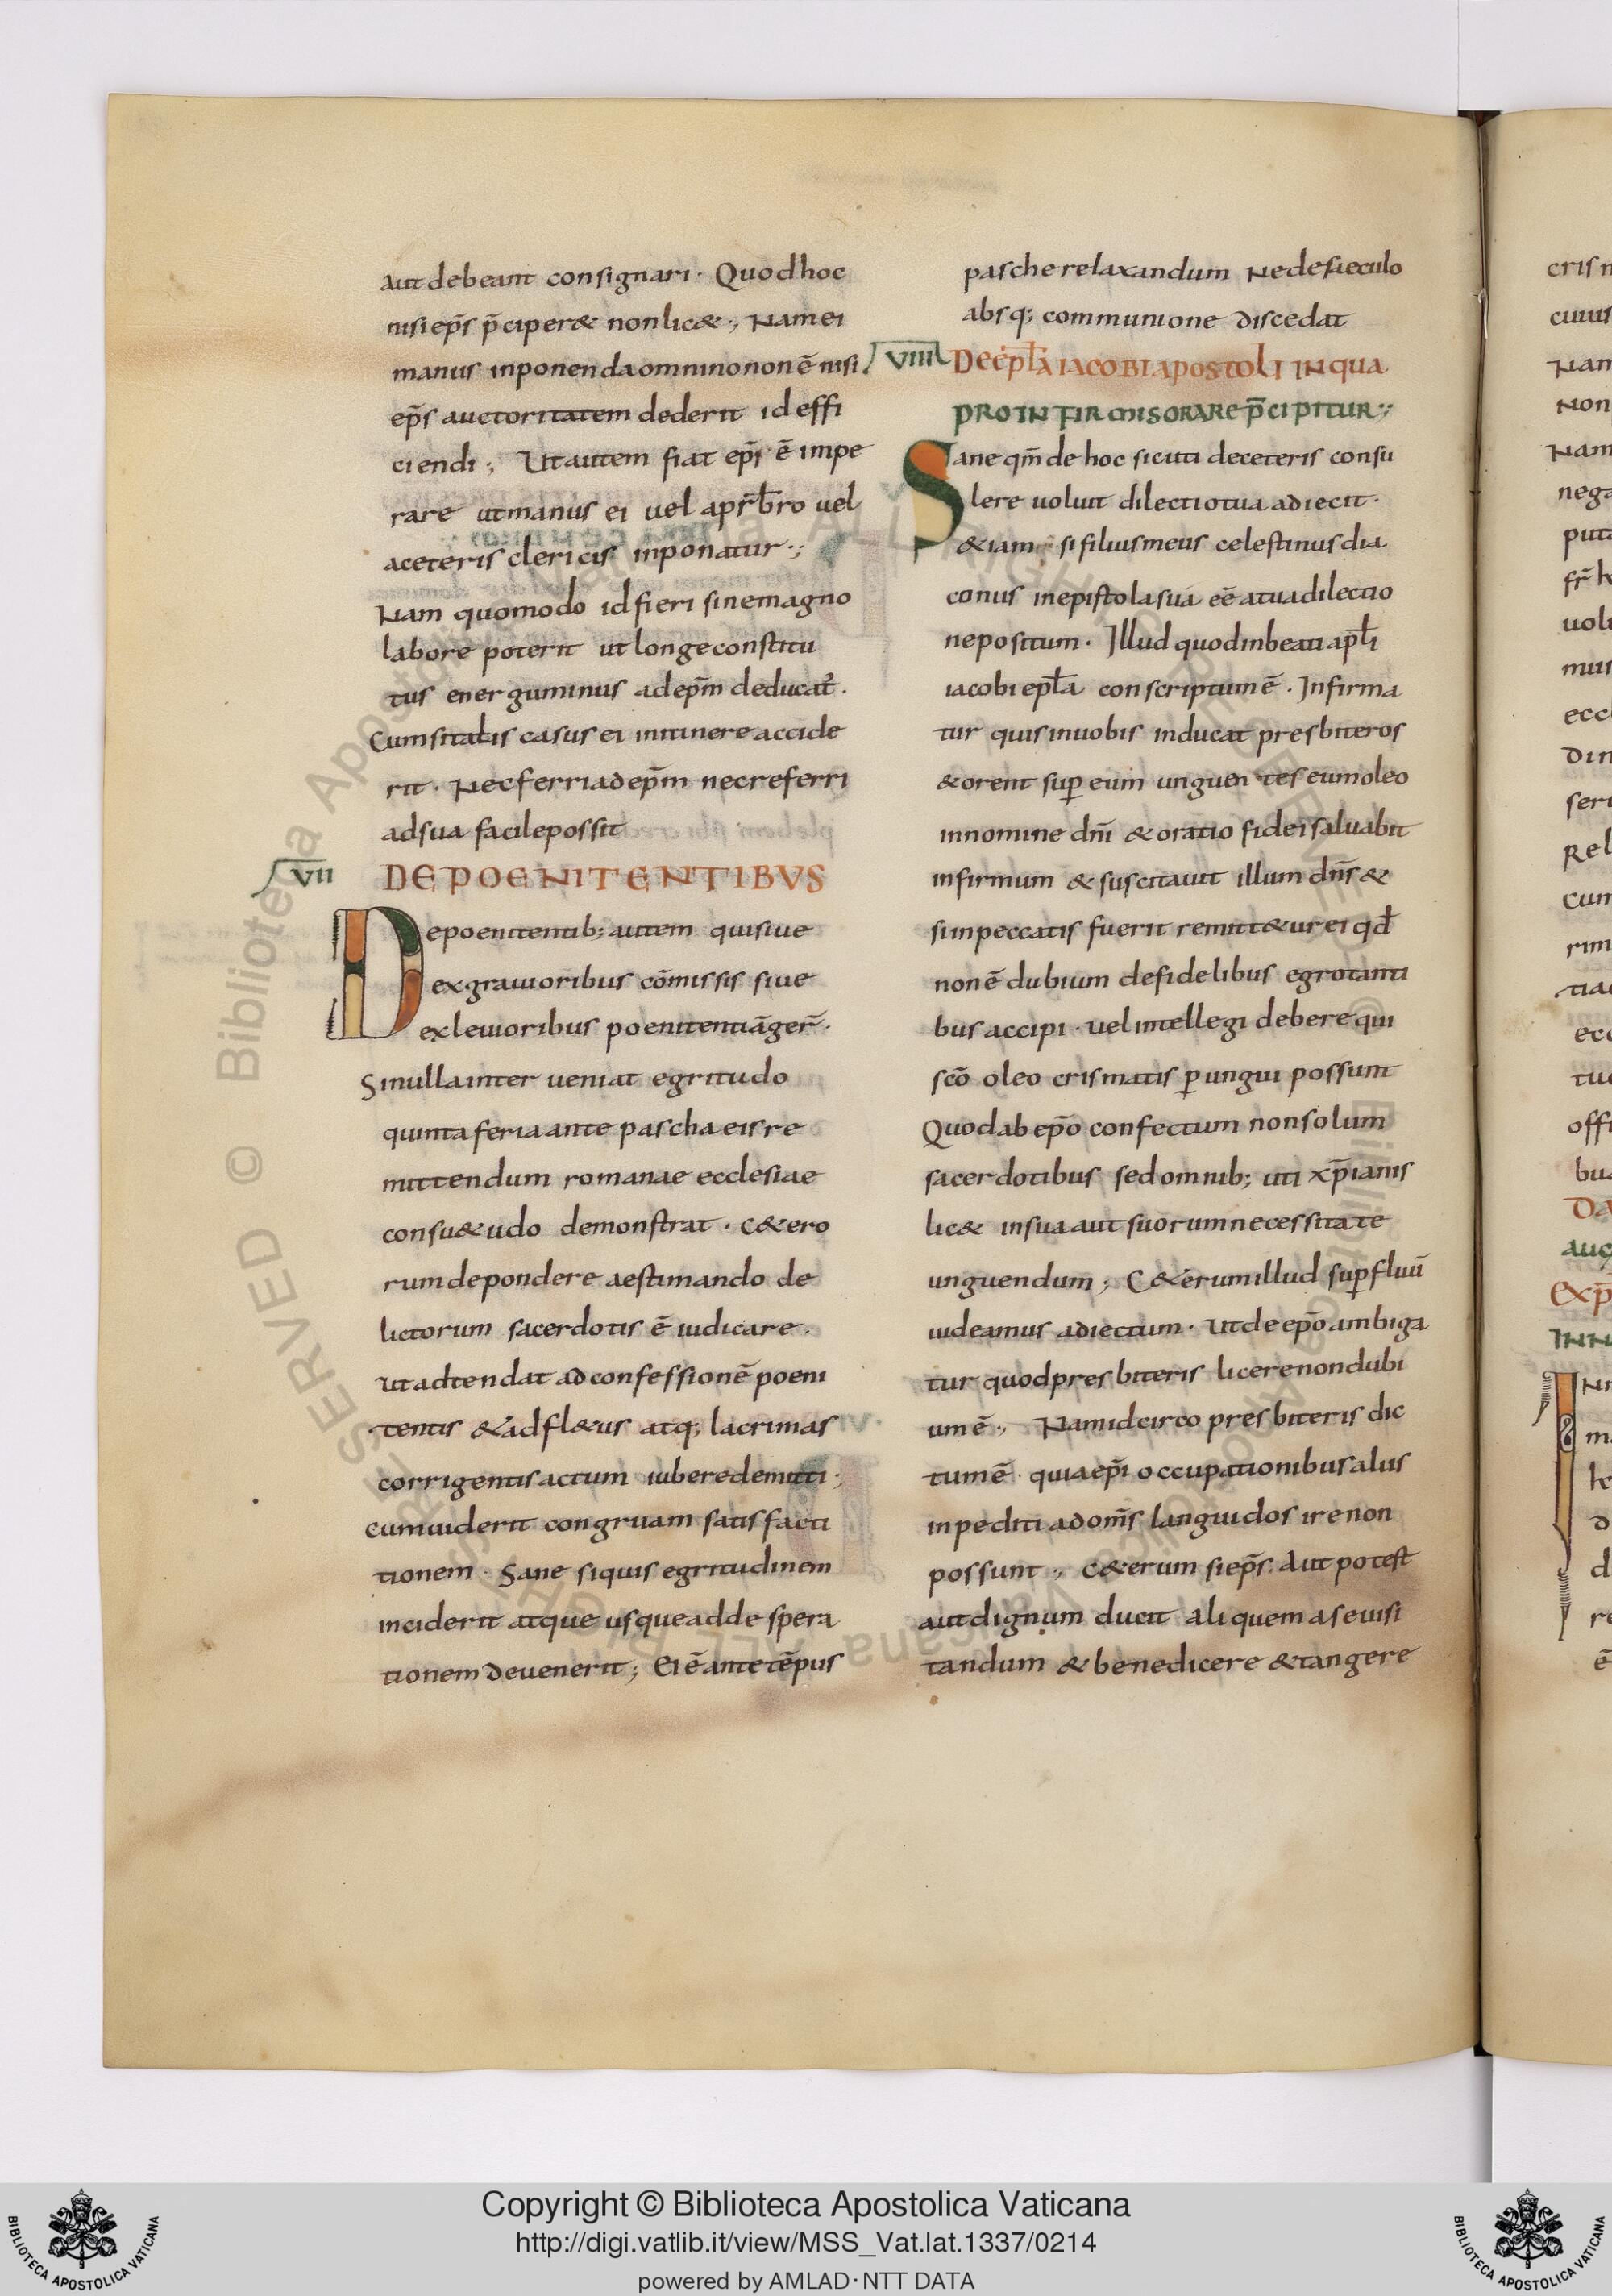 aut debeant consignari · Quod hoc
nisi ep̄s p̄ciper& non lic& ·, Nam ei
manus inponenda omnino non ē nisi
ep̄s auctoritatem dederit id effi
ciendi ; Ut autem fiat ep̄i ē impe
rare ut manus ei uel a pr̄b̄ro uel
a ceteris clericis inponatur ·;
Nam quomodo id fieri sine magno
labore poterit ut longe constitu
tus energuminus ad ep̄m deducat̄ .
Cum si talis casus ei in itinere accide
rit · Nec ferri ad ep̄m nec referri
ad sua facile possit
VII DE POENITENTIBVS
De poenitentib; autem qui siue
ex grauioribus cōmissis siue
ex leuioribus poenitentiā ger̄ ·
Si nulla inter ueniat egritudo
quinta feria ante pascha eis re
mittendum romanae ecclesiae
consu&udo demonstrat · C&ero
rum de pondere aestimando de
lictorum sacerdotis ē iudicare .
ut adtendat ad confessionē poeni
tentis & ad fl&us atq; lacrimas
corrigentis actum iubere demitti ;
cum uiderit congruam satisfacti
tionem · Sane si quis egritudinem
inciderit atque usque ad de spera
tionem deuenerit ; Ei ē ante tēpus
pasche relaxandum Ne de saeculo
absq; communione discedat
VIIII De epl̄a iacobi apostoli in qua
pro infirmis orare p̄cipitur ;
Sane qm̄ de hoc sicuti de ceteris consu
lere uoluit dilectio tua adiecit ·
&iam si filius meus celestinus dia
conus in epistola sua eē a tua dilectio
ne positum · Illud quod in beati apl̄i
iacobi epl̄a conscriptum ē . Infirma
tur quis in uobis inducat presbiteros
& orent sup eum unguen tes eum oleo
in nomine dn̄i & oratio fidei saluabit
infirmum & suscitauit illum dn̄s &
si in peccatis fuerit remitt&ur ei qd̄
non ē dubium de fidelibus egrotanti
bus accipi · uel intellegi debere qui
sc̄o oleo crismatis p ungui possunt
Quod ab ep̄o confectum non solum
sacerdotibus sed omnib; uti xp̄ianis
lic& in sua aut suorum necessitate
unguendum ; C&erum illud sup fluū
uideamus adiectum · ut de ep̄o ambiga
tur quod presbiteris licere non dubi
um ē ·, Nam idcirco presbiteris dic
tum ē · quia ep̄i occupationibus aliis
inpediti ad om̄s languidos ire non
possunt ·, C&erum si ep̄s . Aut potest
aut dignum ducit aliquem a se uisi
tandum & benedicere & tangere
Copyright © Biblioteca Apostolica Vaticana
http://digi.vatlib.it/view/MSS_Vat.lat.1337/0214
powered by AMLAD · NTT DATA